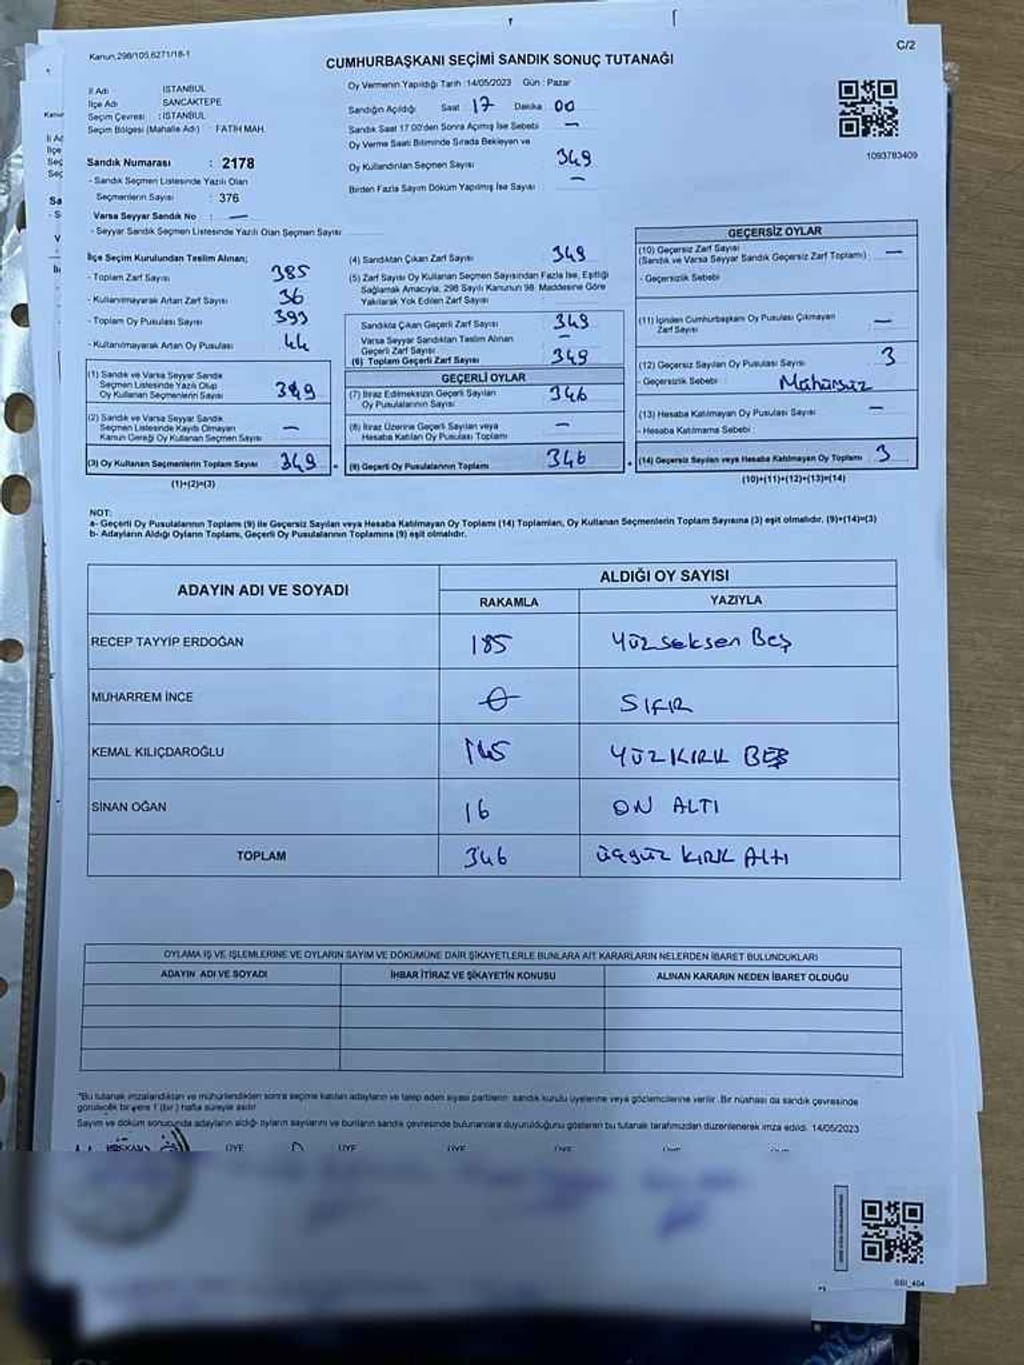 Kanun, 298/105,6271/18-1
C/2
CUMHURBAŞKANI SEÇİMİ SANDIK SONUÇ TUTANAĞI
İl Adı : İSTANBUL
İlçe Adı : SANCAKTEPE
Seçim Çevresi : İSTANBUL
Seçim Bölgesi (Mahalle Adı) : FATİH MAH.
Sandık Numarası : 2178
- Sandık Seçmen Listesinde Yazılı Olan
Seçmenlerin Sayısı : 376
Varsa Seyyar Sandık No : —
- Seyyar Sandık Seçmen Listesinde Yazılı Olan Seçmen Sayısı
Oy Vermenin Yapıldığı Tarih : 14/05/2023 Gün : Pazar
Sandığın Açıldığı Saat 17 Dakika 00
Sandık Saat 17.00'den Sonra Açılmış İse Sebebi —
Oy Verme Saati Bitiminde Sırada Bekleyen ve
Oy Kullandırılan Seçmen Sayısı 349
Birden Fazla Sayım Döküm Yapılmış İse Sayısı —
1093783409
İlçe Seçim Kurulundan Teslim Alınan;
- Toplam Zarf Sayısı 385
- Kullanılmayarak Artan Zarf Sayısı 36
- Toplam Oy Pusulası Sayısı 393
- Kullanılmayarak Artan Oy Pusulası 44
(1) Sandık ve Varsa Seyyar Sandık
Seçmen Listesinde Yazılı Olup
Oy Kullanan Seçmenlerin Sayısı 349
(2) Sandık ve Varsa Seyyar Sandık
Seçmen Listesinde Kaydı Olmayan
Kanun Gereği Oy Kullanan Seçmen Sayısı —
(3) Oy Kullanan Seçmenlerin Toplam Sayısı 349
(1)+(2)=(3)
(4) Sandıktan Çıkan Zarf Sayısı 349
(5) Zarf Sayısı Oy Kullanan Seçmen Sayısından Fazla İse, Eşitliği
Sağlamak Amacıyla; 298 Sayılı Kanunun 98. Maddesine Göre
Yakılarak Yok Edilen Zarf Sayısı
Sandıkta Çıkan Geçerli Zarf Sayısı 349
Varsa Seyyar Sandıktan Teslim Alınan
Geçerli Zarf Sayısı —
(6) Toplam Geçerli Zarf Sayısı 349
GEÇERLİ OYLAR
(7) İtiraz Edilmeksizin Geçerli Sayılan
Oy Pusulalarının Sayısı 346
(8) İtiraz Üzerine Geçerli Sayılan veya
Hesaba Katılan Oy Pusulası Toplamı —
(9) Geçerli Oy Pusulalarının Toplamı 346
GEÇERSİZ OYLAR
(10) Geçersiz Zarf Sayısı
(Sandık ve Varsa Seyyar Sandık Geçersiz Zarf Toplamı) —
- Geçersizlik Sebebi
(11) İçinden Cumhurbaşkanı Oy Pusulası Çıkmayan
Zarf Sayısı —
(12) Geçersiz Sayılan Oy Pusulası Sayısı 3
- Geçersizlik Sebebi : Mühürsüz
(13) Hesaba Katılmayan Oy Pusulası Sayısı —
- Hesaba Katılmama Sebebi :
(14) Geçersiz Sayılan veya Hesaba Katılmayan Oy Toplamı 3
(10)+(11)+(12)+(13)=(14)
NOT:
a- Geçerli Oy Pusulalarının Toplamı (9) ile Geçersiz Sayılan veya Hesaba Katılmayan Oy Toplamı (14) Toplamları, Oy Kullanan Seçmenlerin Toplam Sayısına (3) eşit olmalıdır. (9)+(14)=(3)
b- Adayların Aldığı Oyların Toplamı, Geçerli Oy Pusulalarının Toplamına (9) eşit olmalıdır.
ADAYIN ADI VE SOYADI ALDIĞI OY SAYISI
RAKAMLA YAZIYLA
RECEP TAYYİP ERDOĞAN 185 Yüzseksen Beş
MUHARREM İNCE 0 SIFIR
KEMAL KILIÇDAROĞLU 145 YÜZKIRK BEŞ
SİNAN OĞAN 16 ON ALTI
TOPLAM 346 üçyüz KIRK ALTI
OYLAMA İŞ VE İŞLEMLERİNE VE OYLARIN SAYIM VE DÖKÜMÜNE DAİR ŞİKAYETLERLE BUNLARA AİT KARARLARIN NELERDEN İBARET BULUNDUKLARI
ADAYIN ADI VE SOYADI İHBAR İTİRAZ VE ŞİKAYETİN KONUSU ALINAN KARARIN NEDEN İBARET OLDUĞU
"Bu tutanak imzalandıktan ve mühürlendikten sonra seçime katılan adayların ve talep eden siyasi partilerin sandık kurulu üyelerine veya gözlemcilerine verilir. Bir nüshası da sandık çevresinde
görülecek bir yere 1 (bir) hafta süreyle asılır.
Sayım ve döküm sonucunda adayların aldığı oyların sayılarını ve bunların sandık çevresinde bulunanlara duyurulduğunu gösteren bu tutanak tarafımızdan düzenlenerek imza edildi. 14/05/2023
BAŞKAN ÜYE ÜYE ÜYE ÜYE